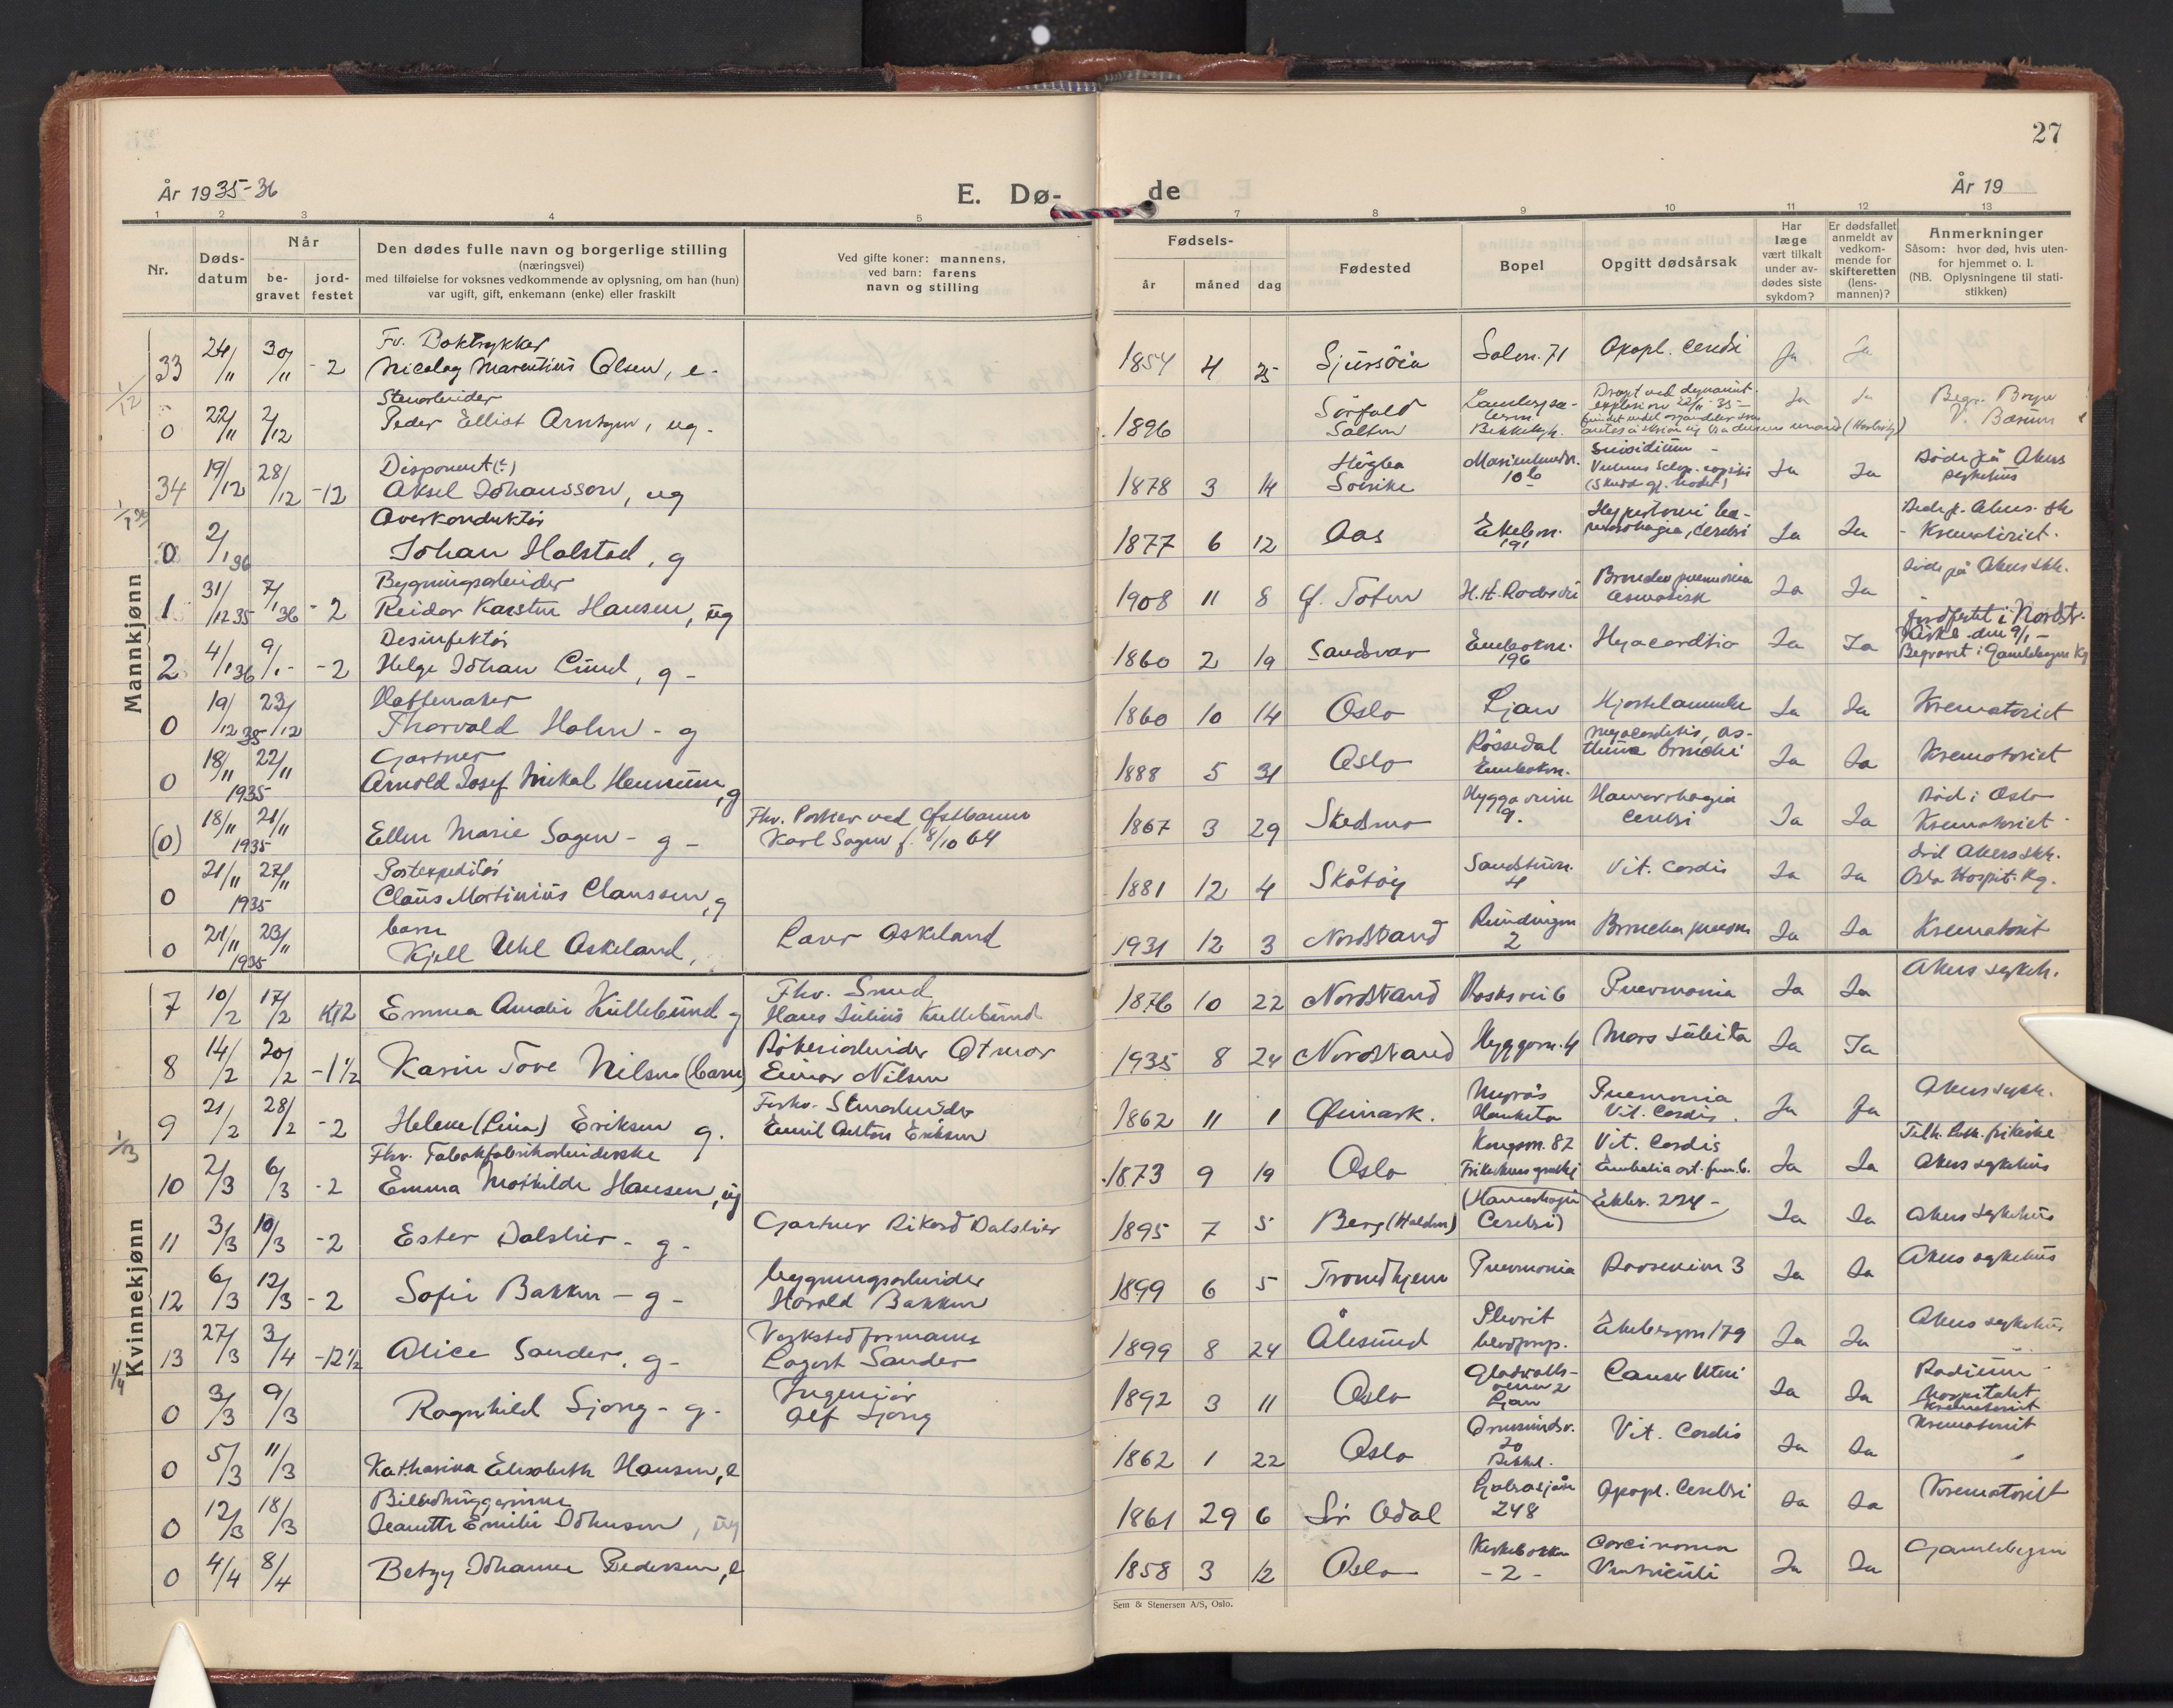 27
År 1935-36
E. Dø-
de
År 19
1 2 3 4 5 7 8 9 10 11 12 13
Nr.
Døds-
datum
Når
be-
gravet
jord-
festet
Den dødes fulle navn og borgerlige stilling
(næringsvei)
med tilføielse for voksnes vedkommende av oplysning, om han (hun)
var ugift, gift, enkemann (enke) eller fraskilt
Ved gifte koner: mannens,
ved barn: farens
navn og stilling
Fødsels-
år måned dag
Fødested
Bopel
Opgitt dødsårsak
Har
læge
vært tilkalt
under av-
dødes siste
sykdom?
Er dødsfallet
anmeldt av
vedkom-
mende for
skifteretten
(lens-
mannen)?
Anmerkninger
Såsom: hvor død, hvis uten-
for hjemmet o. l.
(NB. Oplysningene til stati-
stikken)
Mannkjønn
1/12
Fv. Boktrykker
33 24/11 30/11 -2 Nicolay Marentius Olsen, e. 1854 4 25 Sjursöia Solv. 71 Apopl. Cerebri Ja Ja
Stenarbeider
0 22/11 2/12 Peder Elliot Arntzen, ug. 1896 Sörfold
Salten
Bekkelgh. Drept ved dynamit-
explosion 22/11-35 Ja Ja Begr. Bryn
V. Bærum
Disponent(?)
34 19/12 28/12 -12 Aksel Johansson, ug 1878 3 14 Högbo
Sverike 10b Suicidium
(Skudd gj. hodet) Ja Ja Döde på Akers
sykehus
Overkonduktör
0 2/1 36 Johan Holstad, g 1877 6 12 Aas Ekebv.
191 Cerebri Ja Ja Döde p. Akers sk
- Krematoriet.
Bygningsarbeider
1 31/12 35 7/1 36 -2 Reidar Karsten Hansen, ug 1908 11 8 Ø. Toten Ja Ja Döde på Akers skh.
Desinfektör
2 4/1 36 9/1 -2 Helge Johan Lund, g - 1860 2 19 Sandsvær Enebakv.
196 Ja Ja jordfestet i Nordstr.
Kirke den 9/1 -
Begravet i Gamlebyen Kg
Hattemaker
0 19/12 35 23/12 Thorvald Holm - g 1860 10 14 Oslo Ljan Hjertelammelse Ja Ja Krematoriet
Gartner
0 18/11 22/11 1935 Arnold Josef Mikal Hennum, g 1888 5 31 Oslo Enebakv. Myocarditis, as-
thma bronchi Ja Ja Krematoriet
(0) 18/11 21/11 1935 Ellen Marie Sagen - g - Fhv. Portier ved Østbanen
Karl Sagen f. 8/10 64 1867 3 29 Skedsmo Hyggeveien
9. Hæmorrhagia
Cerebri Ja Ja Död i Oslo
Krematoriet
Postexpeditör
0 21/11 27/11 1935 Claus Martinius Claussen, g 1881 12 4 Skåtöy Sandstuv.
4 Vit. Cordis Ja Ja Död Akers skh.
Oslo Hospit. Kg.
barn
0 21/11 23/11 1935 Kjell Uhl Askeland, Laur Askeland 1931 12 3 Nordstrand 2 Ja Ja Krematoriet
Kvinnekjønn
7 10/2 17/2 Kl 2 Emma Amalie Kullebund g Fhv. Smed
Hans Julius Kullebund 1876 10 22 Nordstrand Pneumonia Ja Ja Akers sykeh.
8 14/2 20/2 -1½ Karin Tove Nilsen (barn) Einar Nilsen 1935 8 24 Nordstrand Hyggev. 4 Mors subita Ja Ja
1/3
9 21/2 28/2 -2 Helene (Lina) Eriksen g. Forhv. Stenarbeider
Emil Anton Eriksen 1862 11 1 Ømark. Pneumonia
Vit. Cordis. Ja Ja Akers sykh.
Fhv. Tobakfabrikarbeiderske
10 2/3 6/3 -2 Emma Mathilde Hansen, ug 1873 9 19 Oslo Kongsv. 82 Vit. Cordis Ja Ja Tilh. Luth. frikirke
Akers sykehus
11 3/3 10/3 -2 Ester Dalslier - g - Gartner Rikard Dalslier 1895 7 5 Berg (Halden) (Hæmorrhagia
Cerebri) Ekbv. 224 - Ja Ja Akers sykehus
12 6/3 12/3 -2 Sofie Bakken - g - bygningsarbeider
Harald Bakken 1899 6 5 Trondhjem Pneumonia 3 Ja Ja Akers sykehus
1/4
13 27/3 3/4 -12½ Alice Sander, g - Verkstedformann
Lagert Sander 1899 8 24 Ålesund Plevrit Ekebergvn 179 Ja Ja Akers sykehus
0 3/3 9/3 Ragnhild Ljong - g - Ingeniör
Alf Ljong 1892 3 11 Oslo Ljan Cancer Uteri Ja Ja Radium
hospitalet
Krematoriet
0 5/3 11/3 Katharina Elisabeth Hansen, e 1862 1 22 Oslo Ormsundv.
20
Bekkel. Vit. Cordis Ja Ja Krematoriet
Billedhuggerinne
0 12/3 18/3 Jeanette Emilie Johnsen, ug 1861 29 6 Sör Odal 248 Apopl. Cerebri Ja Ja Krematoriet
0 4/4 8/4 Betzy Johanne Pedersen, e 1858 3 12 Oslo Kirkebakken
- 2 - Carcinoma
Ventriculi Ja Ja Gamlebyen
Sem & Stenersen A/S, Oslo.